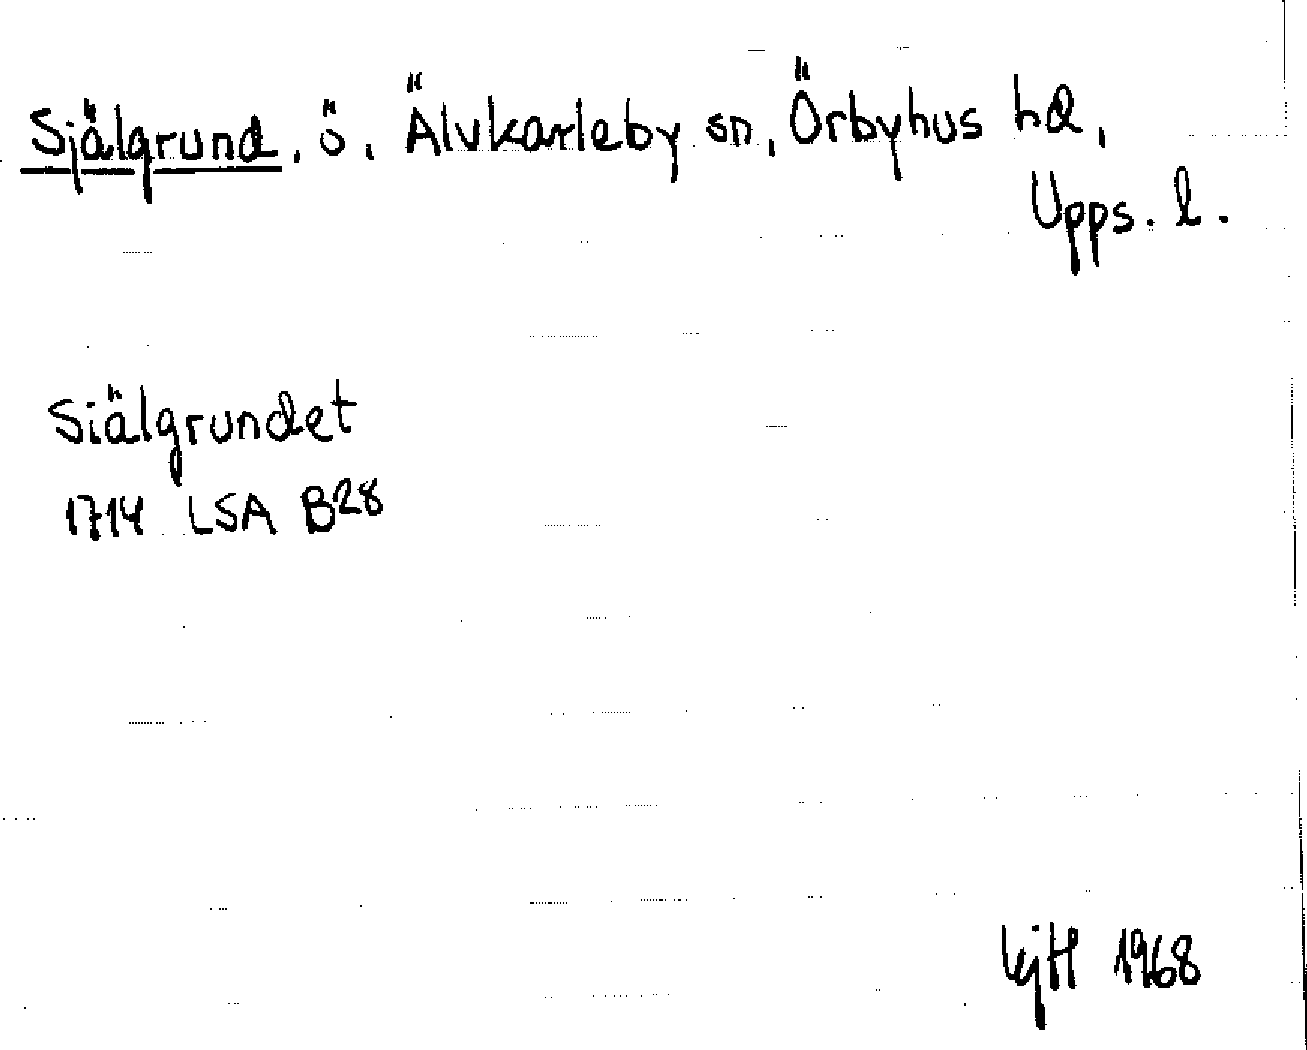 Själgrund, ö, Älvkarleby sn, Örbyhus hd,
Upps. l.
Siälgrundet
1714 LSA B28
1968